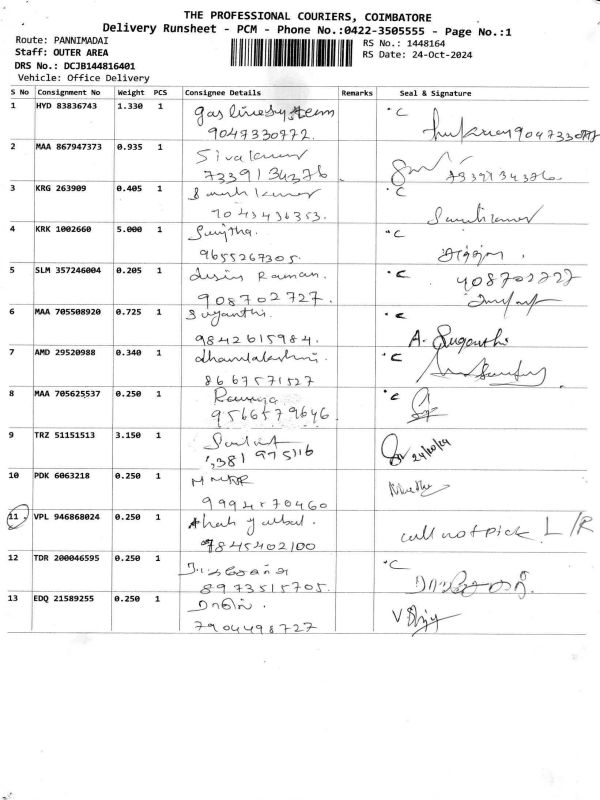 THE PROFESSIONAL COURIERS, COIMBATORE
Delivery Runsheet - PCM - Phone No.:0422-3505555 - Page No.:1
Route: PANNIMADAI
Staff: OUTER AREA
DRS No.: DCJB144816401
Vehicle: Office Delivery
RS No.: 1448164
RS Date: 24-Oct-2024
S No Consignment No Weight PCS Consignee Details Remarks Seal & Signature
1 HYD 83836743 1.330 1 gas line system °C
9047330772. 9047330772
2 MAA 867947373 0.935 1 Sivakumar
7339134376 7339134376
3 KRG 263909 0.405 1 °C
4 KRK 1002660 5.000 1 Sujitha. °C
9655267305.
5 SLM 357246004 0.205 1 Raman. °C
908702727.
6 MAA 705508920 0.725 1 °C
9842615984. A. Suganthi
7 AMD 29520988 0.340 1 dhanalakshmi °C
8667571527
8 MAA 705625537 0.250 1 Ramya °C
9566579646.
9 TRZ 51151513 3.150 1
24/10/24
10 PDK 6063218 0.250 1
11 VPL 946868024 0.250 1
9845402100 call not pick L/R
12 TDR 200046595 0.250 1 °C
8973515705.
13 EDQ 21589255 0.250 1
7904498727